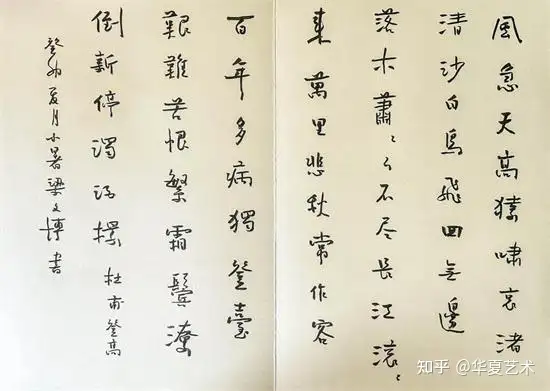 風急天高猿嘯哀渚
清沙白鳥飛回无邊
落木蕭〻下不尽長江滚〻
來萬里悲秋常作客
百年多病獨登臺
艱難苦恨繁霜鬢潦
倒新停濁酒杯 杜甫登高
癸卯夏月小暑梁文博書
知乎 @华夏艺术